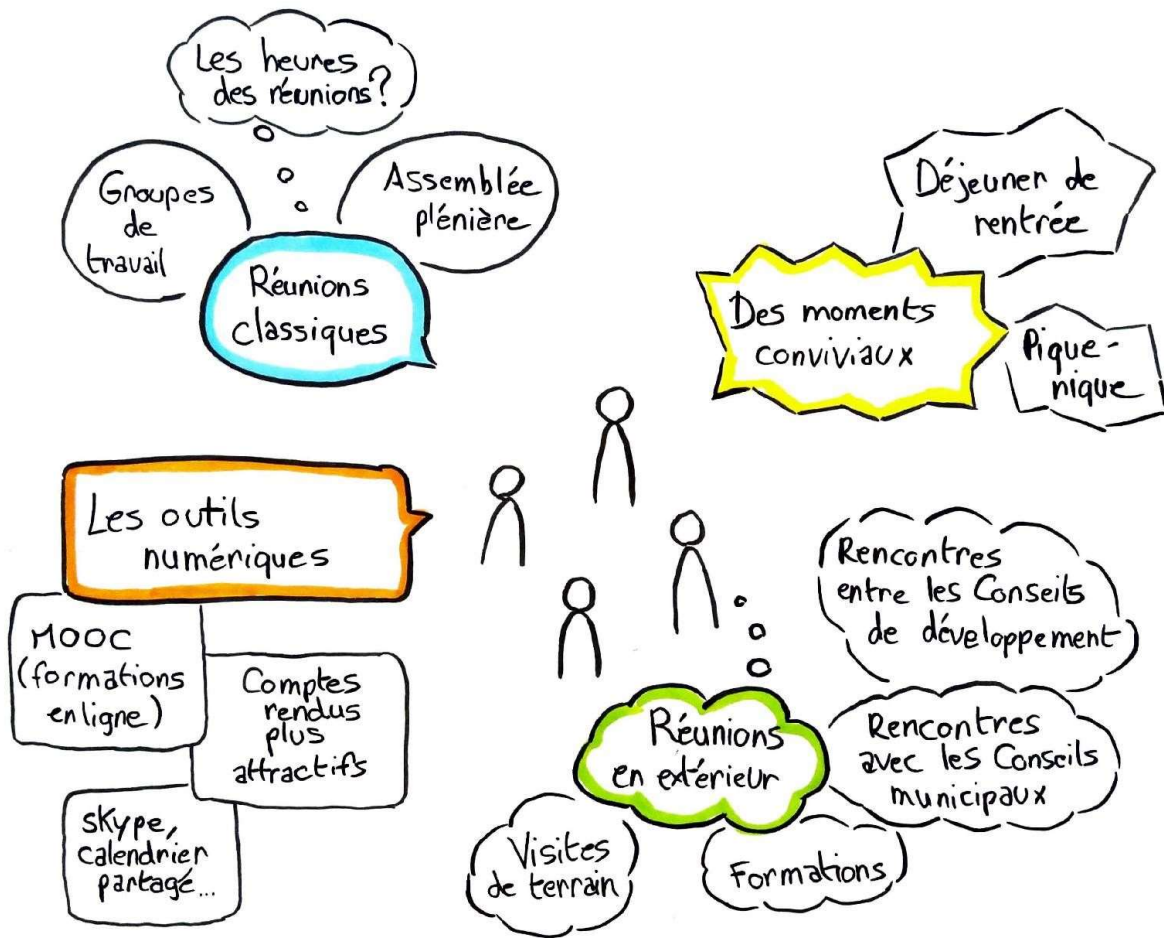 Les heures
des réunions?
Groupes
de
travail
Assemblée
plénière
Réunions
classiques
Déjeuner de
rentrée
Des moments
conviviaux
Pique-
nique
Les outils
numériques
MOOC
(formations
en ligne)
Comptes
rendus
plus
attractifs
skype,
calendrier
partagé...
Rencontres
entre les Conseils
de développement
Réunions
en extérieur
Rencontres
avec les Conseils
municipaux
Visites
de terrain
Formations